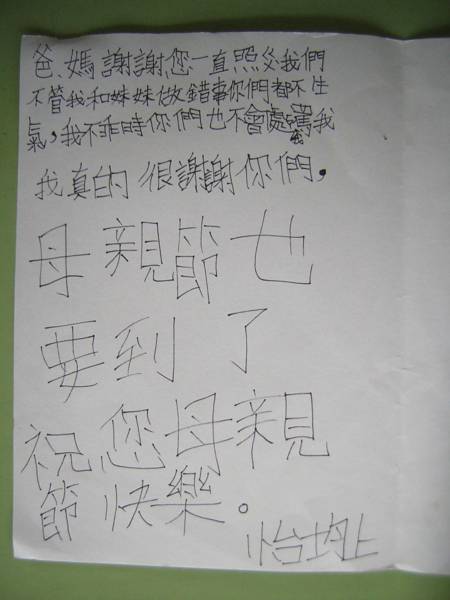 爸、媽謝謝您一直照父我們
不管我和妹妹做錯事你們都不生
氣,我不乖時你們也不會處罵我
我真的很謝謝你們,
母親節也
要到了
祝您母親
節快樂。
怡均上